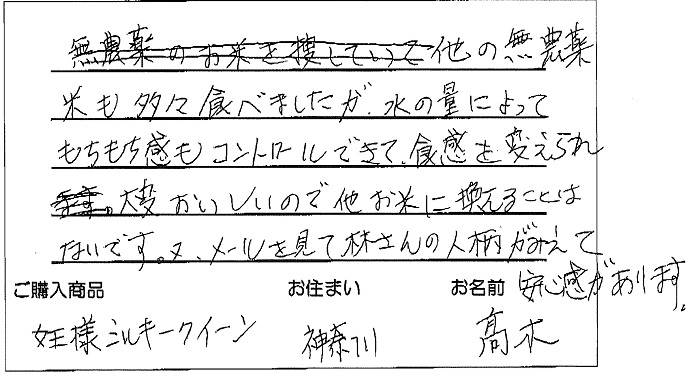 無農薬のお米を捜していて他の無農薬
米も多々食べましたが、水の量によって
もちもち感もコントロールできて、食感を変えられ
ます。大変おいしいので他お米に換えることは
ないです。又、メールを見て林さんの人柄がみえて
安心感があります。
ご購入商品 お住まい お名前
女王様ミルキークイーン 神奈川 髙木